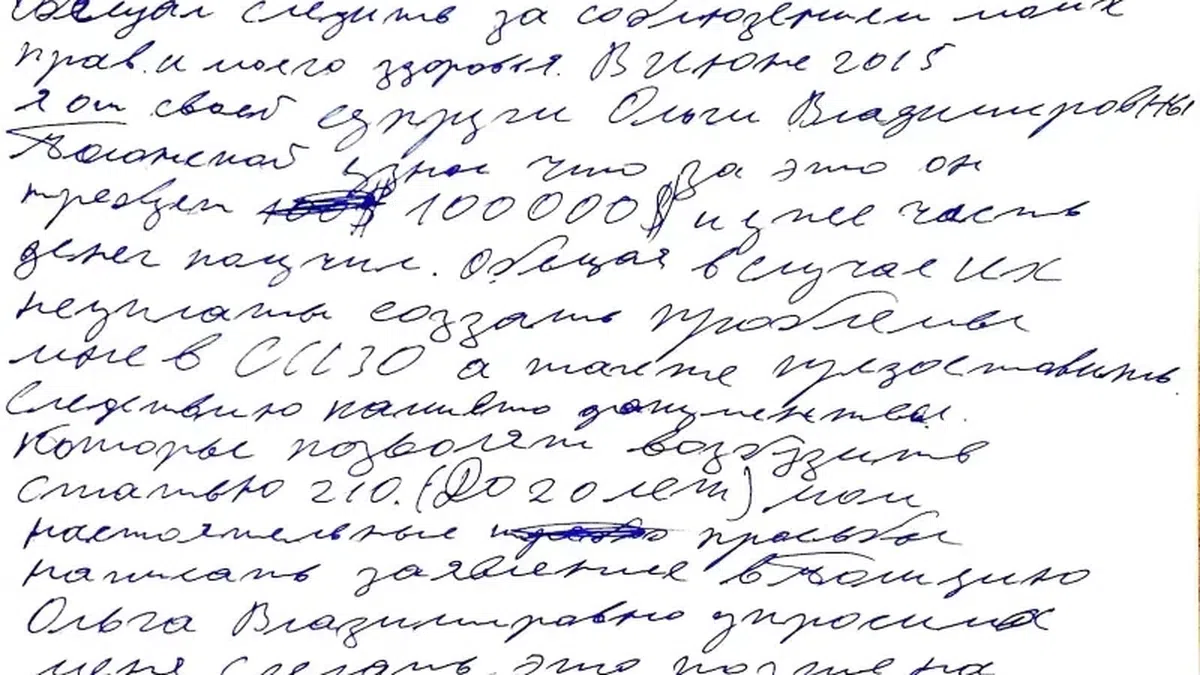 обещал следить за соблюдением моих
прав. и моего здоровья. В Июне 2015
я от своей супруги Ольги Владимировны
узнал что за это он
требует 100000$ и уже часть
денег получил. Обещая в случае их
неуплаты создать проблемы
мне в СИЗО а также предоставить
Следствию документы.
Которые позволят возбудить
статью 210. (До 20 лет) мои
настоятельные просьбы
написать заявление в Полицию
Ольга Владимировно упросила
меня сделать это позже на